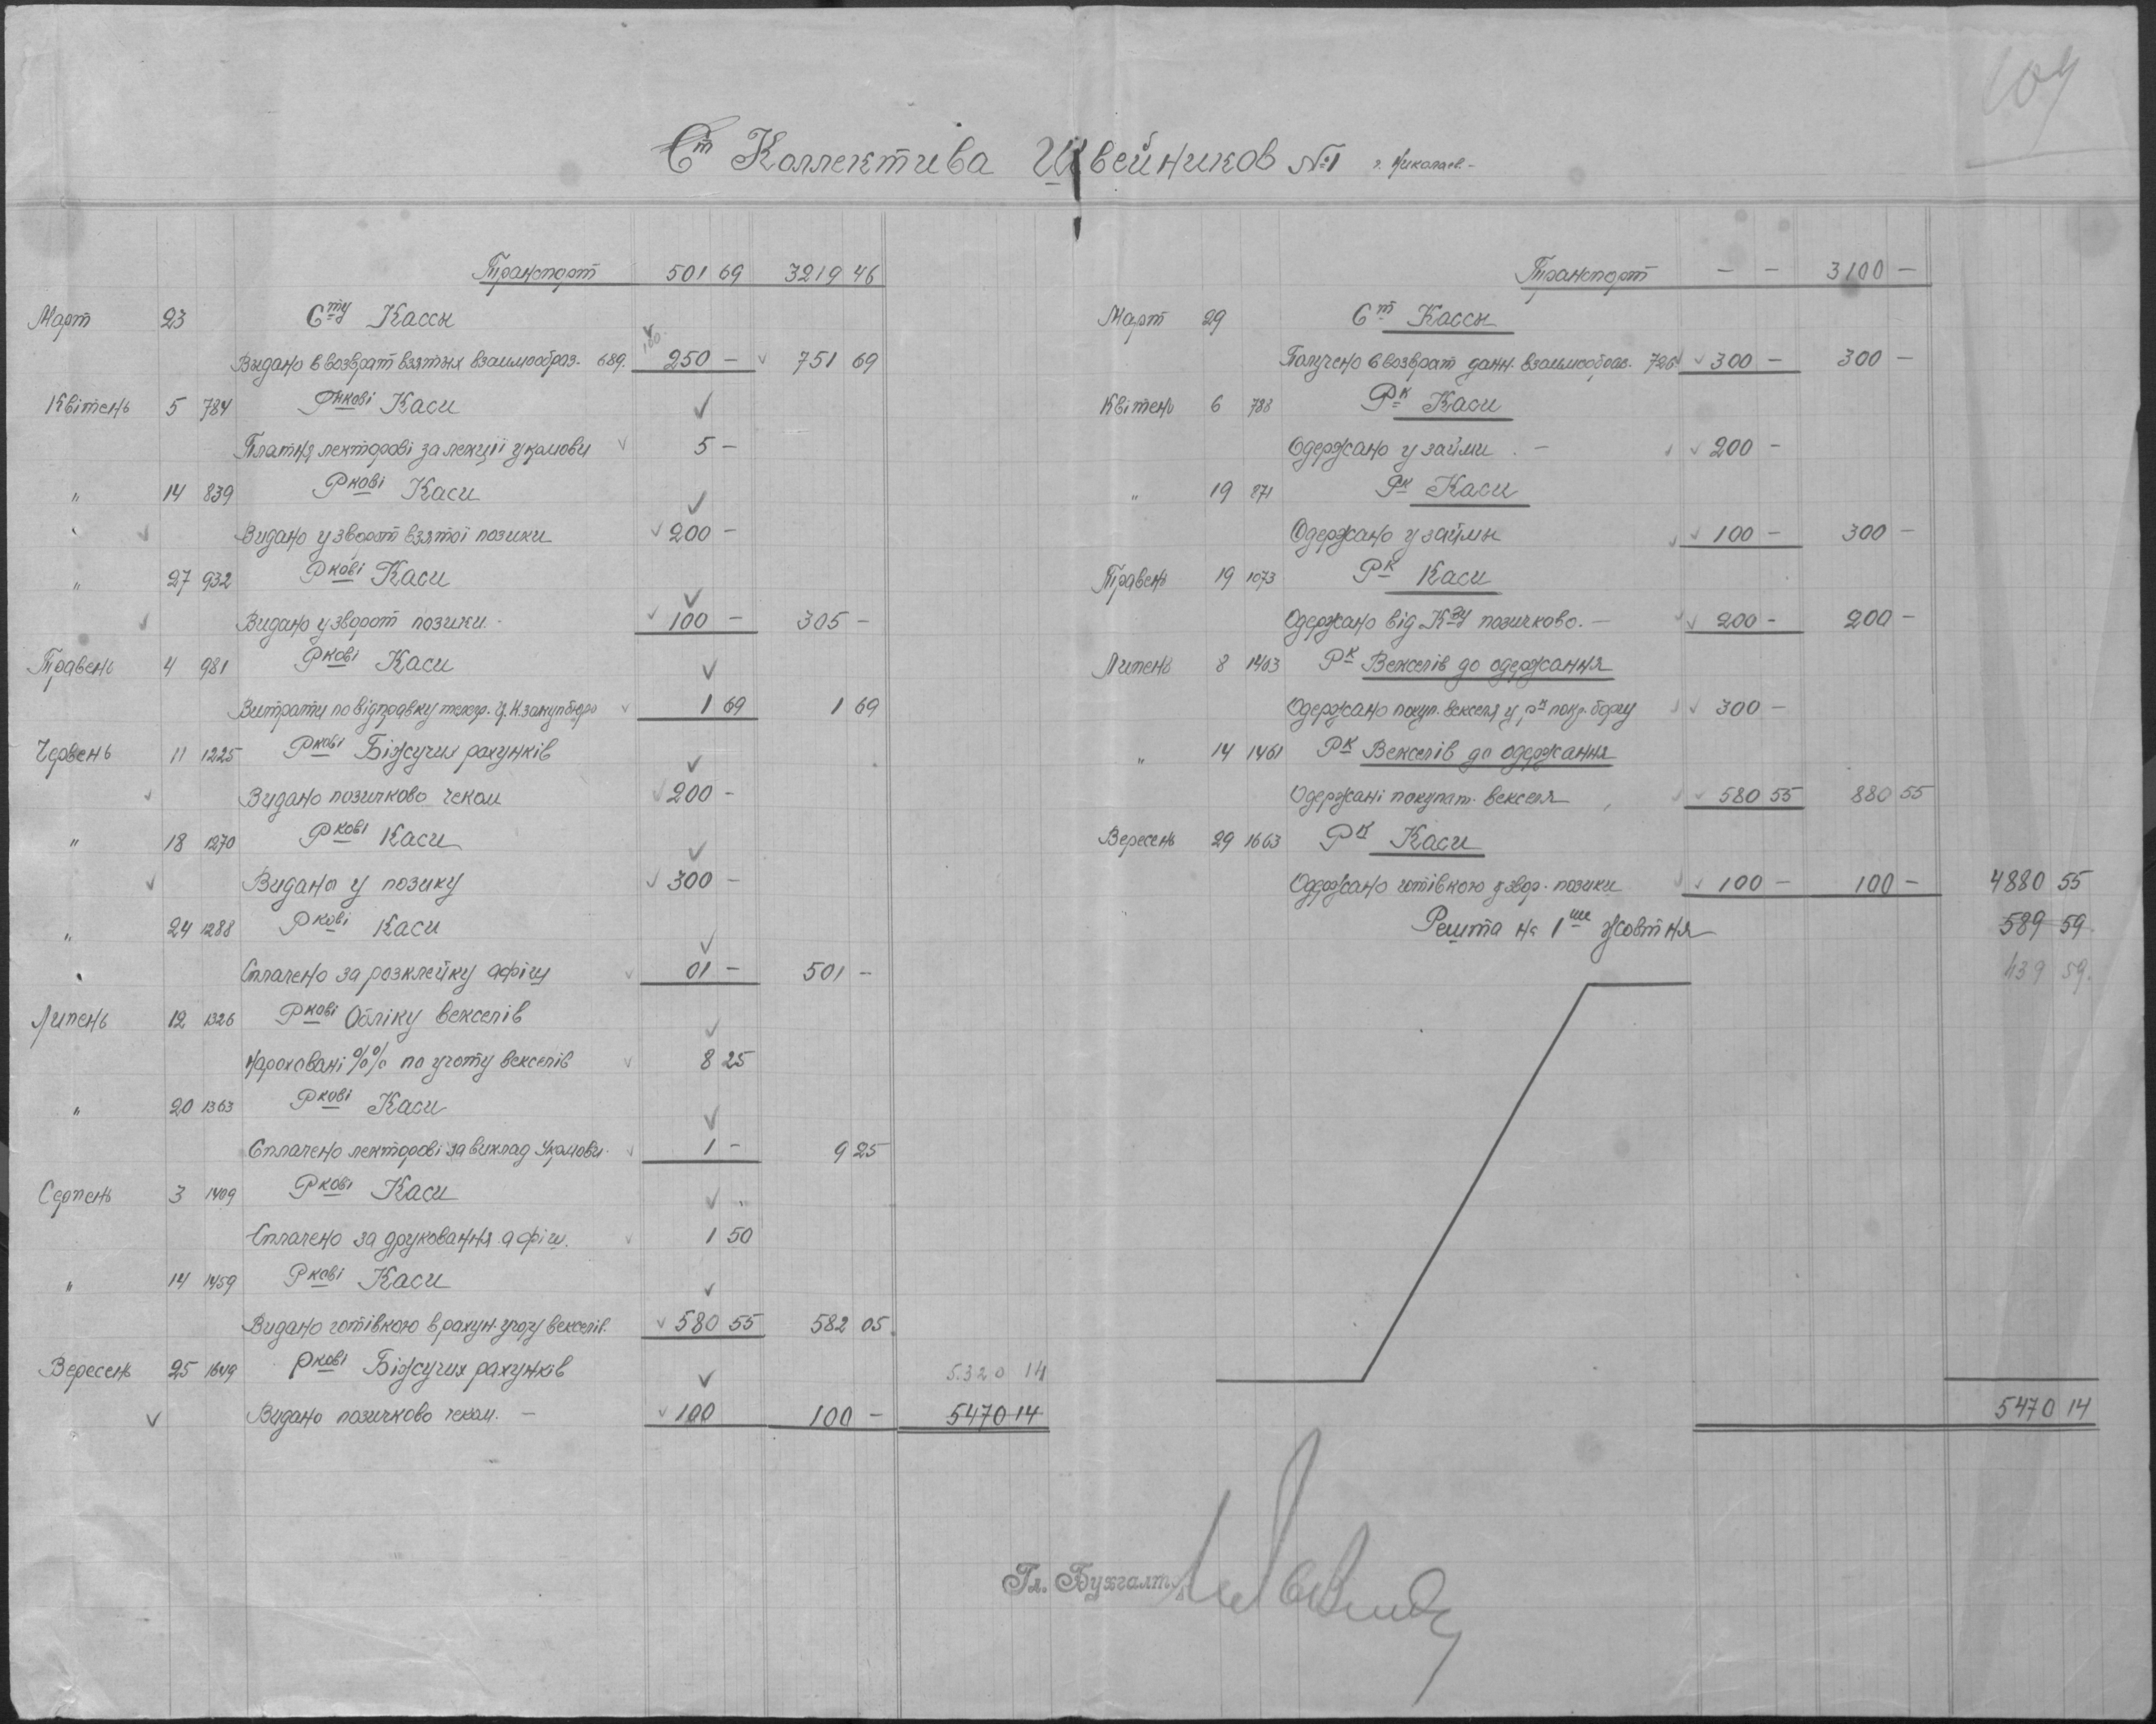 104
Ст Коллектива Швейников №1 г. Николаев.-
Транспорт 501 69 3219 46
Март 23 Сту Кассы
Выдано в возврат взятых взаимообраз. 689. 100 250 - 751 69
Квітень 5 784 Ркові Каси
Платня лекторові за лекціі укрмови 5 -
" 14 839 Ркові Каси
Видано у зворот взятоі позики 200 -
" 27 932 Ркові Каси
Видано у зворот позики. - 100 - 305 -
Травень 4 981 Ркові Каси
Витрати по відправку телегр. 1 69 1 69
Червень 11 1225 Ркові Біжучих рахунків
Видано позичково чеком 200 -
" 18 1270 Ркові Каси
Видано у позику 300 -
" 24 1288 Ркові Каси
Сплачено за розклейку афіш 01 - 501 -
Липень 12 1326 Ркові Обліку векселів
Нараховані %% по учоту векселів 8 25
" 20 1363 Ркові Каси
Сплачено лекторові за виклад Укрмови. 1 - 9 25
Серпень 3 1409 Ркові Каси
Сплачено за друковання афіш. 1 50
" 14 1459 Ркові Каси
Видано готівкою в рахун. учоту векселів. 580 55 582 05
Вересень 25 1649 Ркові Біжучих рахунків 5.320 14
Видано позичково чеком. - 100 100 - 5470 14
Транспорт - - 3100 -
Март 29 Ст Кассы
Получено в возврат данн. взаимообраз. 726 300 - 300 -
Квітень 6 788 Рк Каси
Одержано у займи - 200 -
" 19 871 Рк Каси
Одержано у займы 100 - 300 -
Травень 19 1073 Рк Каси
Одержано від Кву позичково. - 200 - 200 -
Липень 8 1403 Рк Векселів до одержання
Одержано покуп. векселя у рк покр. боргу 300 -
" 14 1461 Рк Векселів до одержання
Одержані покупат. векселя 580 55 880 55
Вересень 29 1663 Рк Каси
Одержано готівкою у звор. позики 100 - 100 - 4880 55
Решта на 1ше жовтня 589 59
439 59.
5470 14
Гл. Бухгалтер